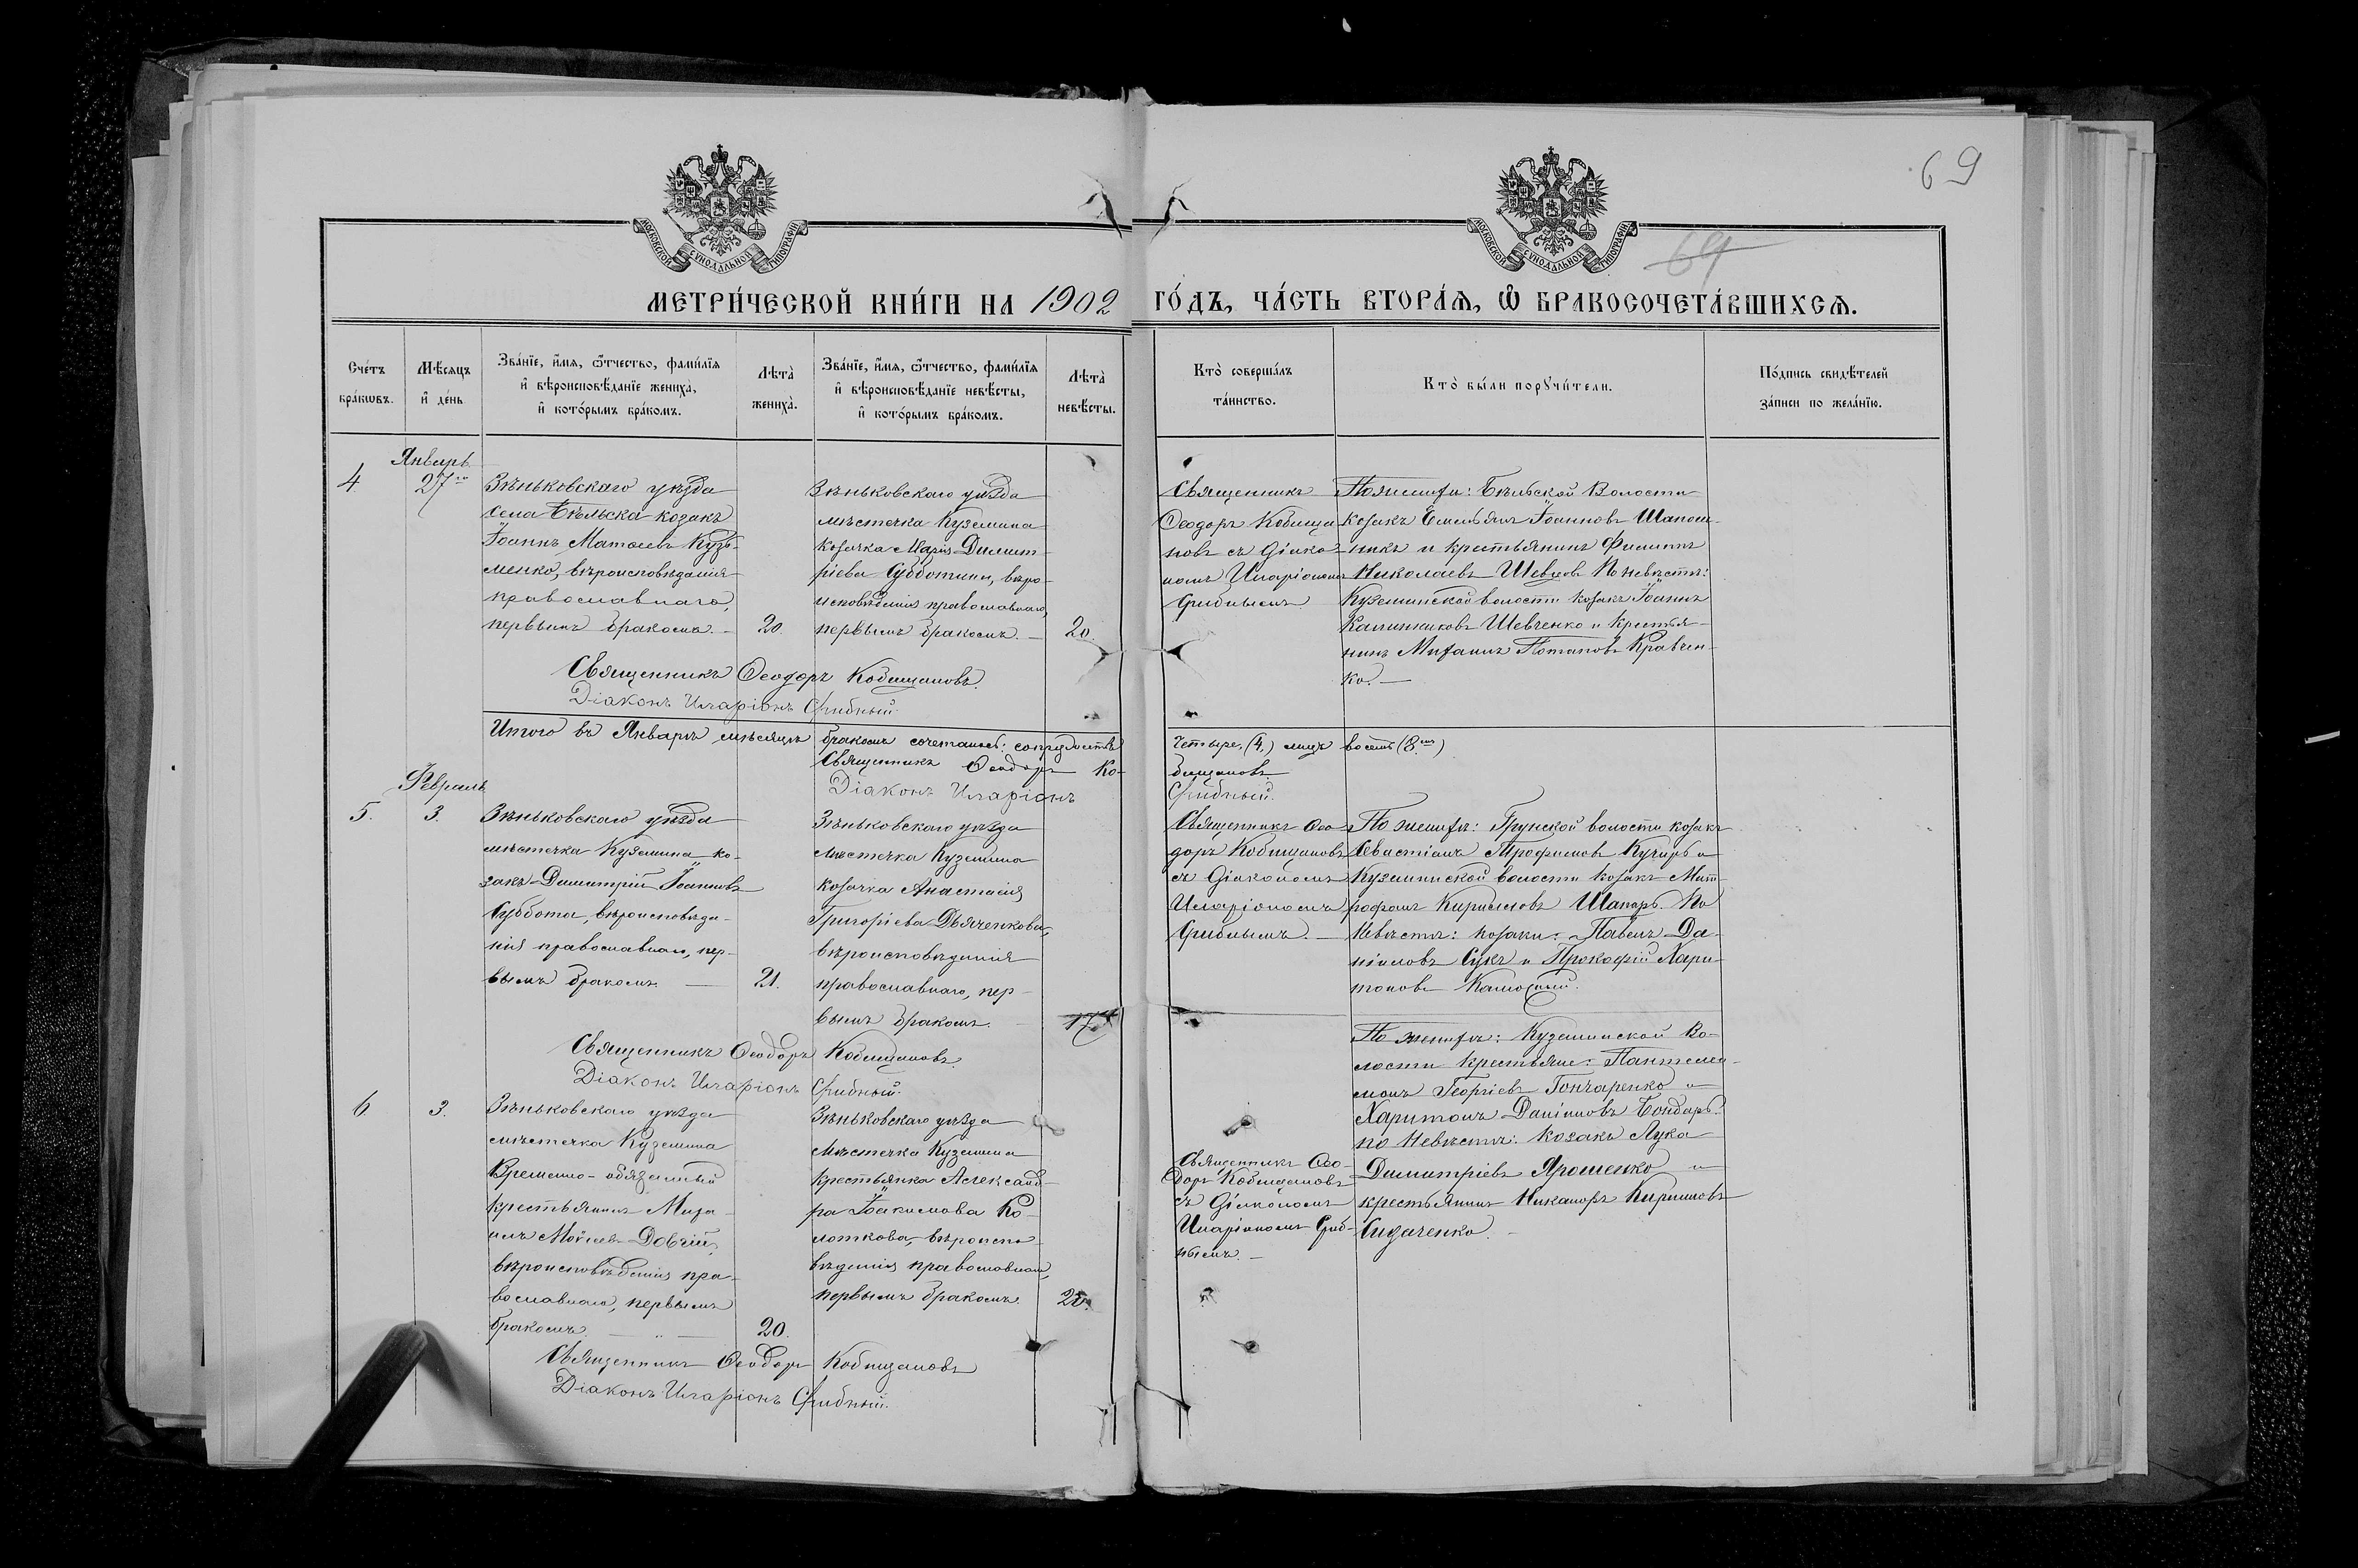 69
64
МОСКОВСКОЙ СѴНОДАЛЬНОЙ ТИПОГРАФІИ
МОСКОВСКОЙ СѴНОДАЛЬНОЙ ТИПОГРАФІИ
МЕТРИ́ЧЕСКОЙ КНИ́ГИ НА 1902 ГО́ДЪ, ЧА́СТЬ ВТОРА́Ѧ, Ѡ БРАКОСОЧЕТА́ВШИХСѦ.
Сче́тъ
бра́кѡвъ.
Мѣ́сяцъ
и҆ де́нь
Зва́нїе, и҆́мя, ѻ҆́тчество, фами́лїя
и҆ вѣроисповѣ́данїе жениха̀,
и҆ кото́рымъ бра́комъ.
Лѣ́та̀
жениха̀.
Зва́нїе, и҆́мя, ѻ҆́тчество, фами́лїя
и҆ вѣроисповѣ́данїе невѣ́сты,
и҆ кото́рымъ бра́комъ.
Лѣ́та̀
невѣ́сты.
Кто̀ соверша́лъ
та́инство.
Кто̀ бы́ли порꙋчи́тели.
По́дпись свидѣ́телей
за́писи по жела́нїю.
Январь
4.
27го
Зѣньковскаго уѣзда
села Бѣльска козакъ
Іоаннъ Матѳіевъ Кузь-
менко, вѣроисповѣданія
православнаго,
первымъ бракомъ. –
20.
Зѣньковскаго уѣзда
мѣстечка Куземина
козачка Марія Димит-
ріева Субботина, вѣро-
исповѣданія православнаго,
первымъ бракомъ. –
20.
Священникъ
Ѳеодоръ Кобища-
новъ съ діако-
номъ Иларіономъ
Срибнымъ
По женихѣ: Бѣльской Волости
козакъ Емельянъ Іоанновъ Шапош-
никъ и крестьянинъ Филиппъ
Николаевъ Шевцовъ По невѣстѣ:
Куземинской волости козакъ Іоаннъ
Каллиниковъ Шевченко и крестья-
нинъ Михаилъ Потаповъ Кравчен-
ко. –
Священникъ Ѳеодоръ Кобищановъ.
Діаконъ Иларіонъ Срибный.
Итого въ Январѣ мѣсяцѣ бракомъ сочеталось: супружествъ четыре, (4,) лицъ восемь (8мь)
Священникъ Ѳеодоръ Кобищановъ.
Діаконъ Иларіонъ Срибный.
Февраль
5.
3.
Зѣньковскаго уѣзда
мѣстечка Куземина ко-
закъ Димитрій Іоанновъ
Суббота, вѣроисповѣда-
нія православнаго, пер-
вымъ бракомъ. –
21.
Зѣньковскаго уѣзда
мѣстечка Куземина
козачка Анастасія
Григоріева Дьяченкова,
вѣроисповѣданія
православнаго, пер-
вымъ бракомъ. –
17
Священникъ Ѳео-
доръ Кобищановъ
съ діакономъ
Иларіономъ
Срибнымъ. –
По женихѣ: Грунской волости козакъ
Севастіанъ Трофимовъ Кучеръ и
Куземинской волости козакъ Мит-
рофанъ Кирилловъ Шапаръ. По
невѣстѣ: козаки: Павелъ Да-
ніиловъ Сукъ и Прокофій Хари-
тоновъ
Священникъ Ѳеодоръ Кобищановъ.
Діаконъ Иларіонъ Срибный.
6.
3.
Зѣньковскаго уѣзда
мѣстечка Куземина
Временно-обязанный
крестьянинъ Миха-
илъ Моѵсеевъ Довгій,
вѣроисповѣданія пра-
вославнаго, первымъ
бракомъ. –
20.
Зѣньковскаго уѣзда
мѣстечка Куземина
крестьянка Александ-
ра Іоакимова Ко-
лоткова, вѣроиспо-
вѣданія православнаго,
первымъ бракомъ.
20.
Священникъ Ѳео-
доръ Кобищановъ
съ діакономъ
Иларіономъ Сриб-
нымъ. –
По женихѣ: Куземинской Во-
лости крестьяне: Пантелеи-
монъ Георгіевъ Гончаренко и
Харитонъ Даніиловъ Бондарь.
по невѣстѣ: козакъ Лука
Димитріевъ Ярошенко и
крестьянинъ Никаноръ Кирилловъ
Сидаченко. –
Священникъ Ѳеодоръ Кобищановъ
Діаконъ Иларіонъ Срибный.